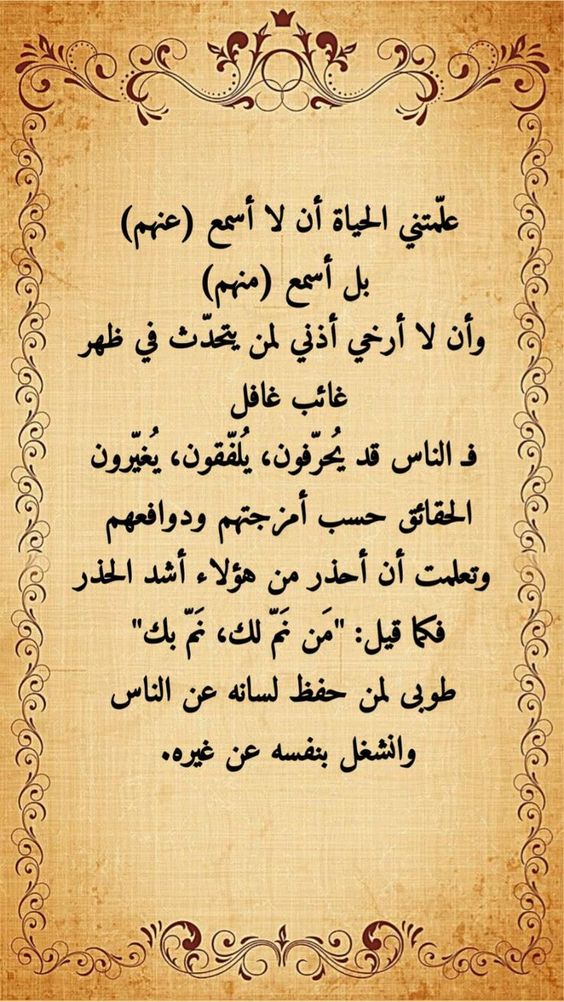 علّمتني الحياة أن لا أسمع (عنهم)
بل أسمع (منهم)
وأن لا أرخي أذني لمن يتحدّث في ظهر
غائب غافل
فـ الناس قد يُحرّفون، يُلفّقون، يُغيّرون
الحقائق حسب أمزجتهم ودوافعهم
وتعلمت أن أحذر من هؤلاء أشد الحذر
فكما قيل: "مَن نَمّ لك، نَمّ بك"
طوبى لمن حفظ لسانه عن الناس
وانشغل بنفسه عن غيره.